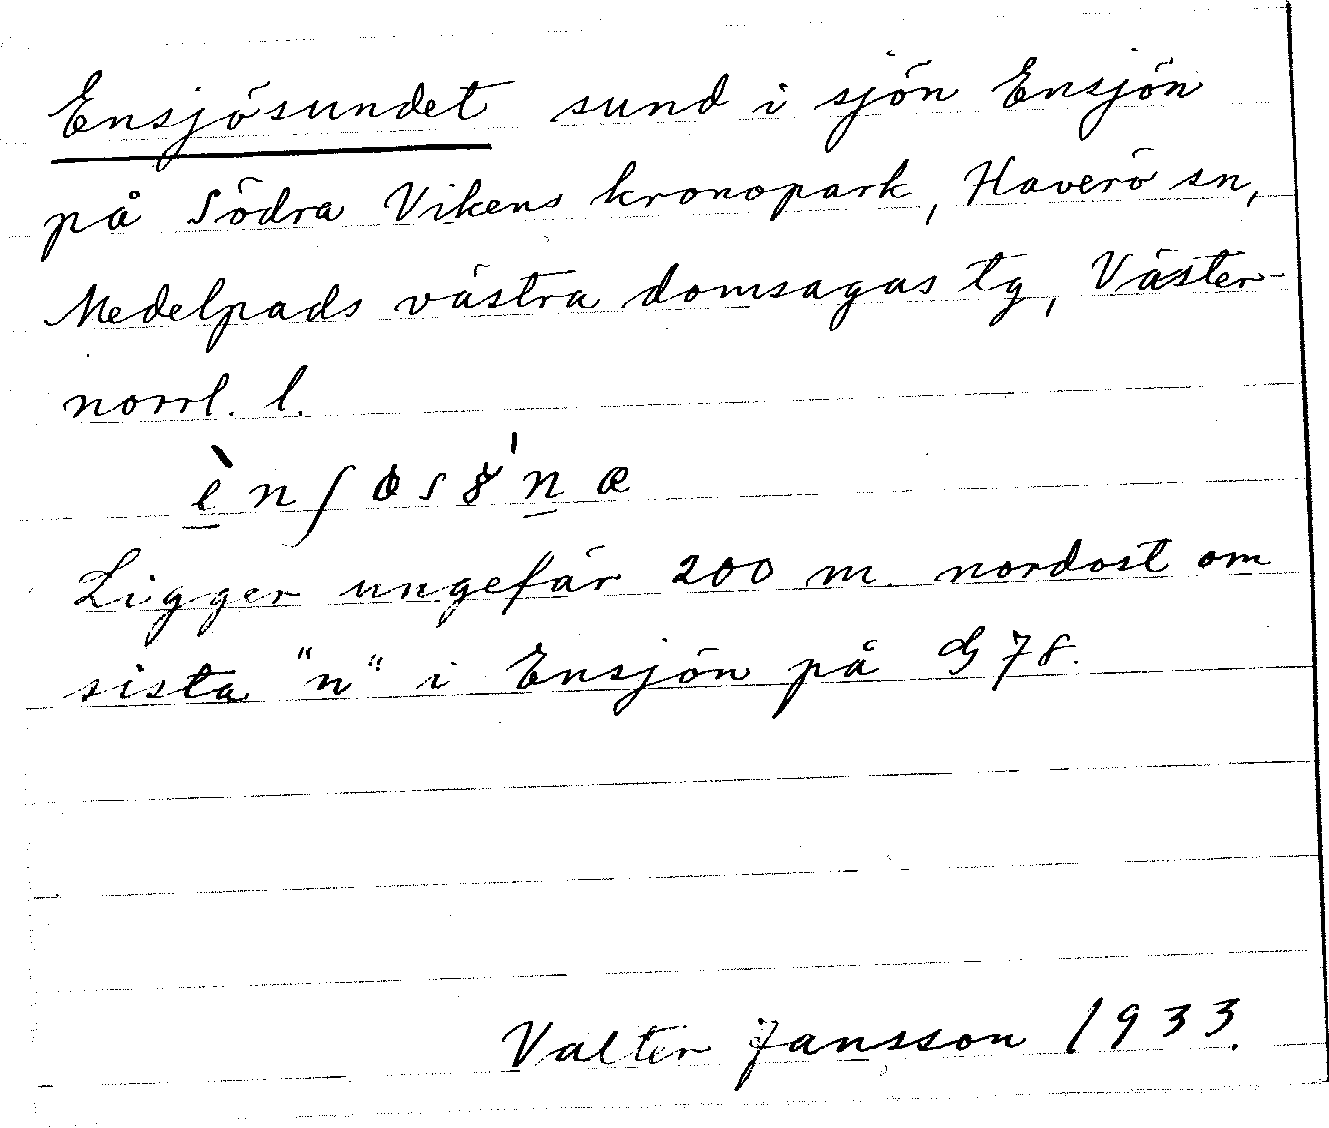 Ensjösundet sund i sjön Ensjön
på Södra Vikens kronopark, Haverö sn,
Medelpads västra domsagas tg, Väster-
norrl. l.
Ligger ungefär 200 m. nordost om
sista "n" i Ensjön på G 78.
Valter Jansson 1933.